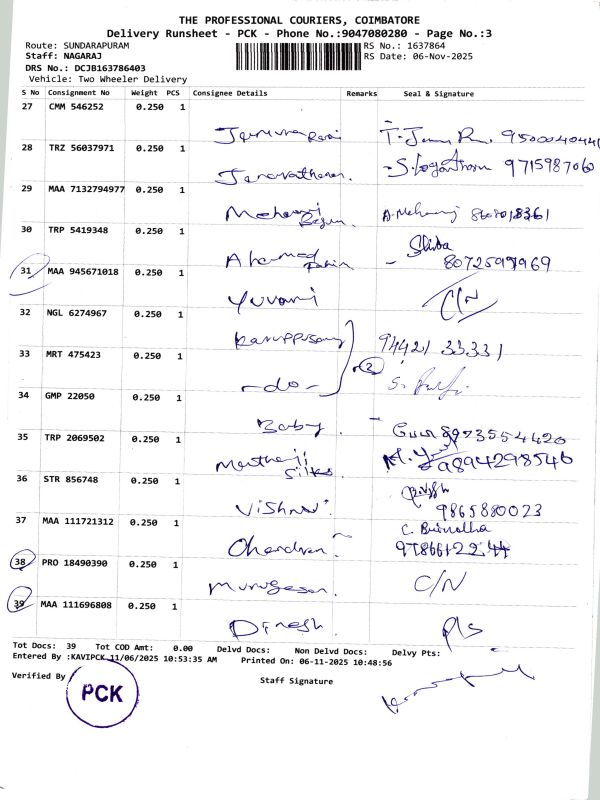 THE PROFESSIONAL COURIERS, COIMBATORE
Delivery Runsheet - PCK - Phone No.:9047080280 - Page No.:3
Route: SUNDARAPURAM RS No.: 1637864
Staff: NAGARAJ RS Date: 06-Nov-2025
DRS No.: DCJB163786403
Vehicle: Two Wheeler Delivery
S No Consignment No Weight PCS Consignee Details Remarks Seal & Signature
27 CMM 546252 0.250 1
28 TRZ 56037971 0.250 1
Janarathanan. 9715987060
29 MAA 7132794977 0.250 1
30 TRP 5419348 0.250 1
Ahamed Shiba
31 MAA 945671018 0.250 1
Yuvarani C/N
32 NGL 6274967 0.250 1
Karuppusamy 94421 33331
33 MRT 475423 0.250 1
-do- 2
34 GMP 22050 0.250 1
Baby. 8973554420
35 TRP 2069502 0.250 1
Silks 9894298546
36 STR 856748 0.250 1
Vishnu 9865880023
37 MAA 111721312 0.250 1
Chandran
38 PRO 18490390 0.250 1
Murugesan. C/N
39 MAA 111696808 0.250 1
Dinesh. Pls
Tot Docs: 39 Tot COD Amt: 0.00 Delvd Docs: Non Delvd Docs: Delvy Pts:
Entered By :KAVIPCK 11/06/2025 10:53:35 AM Printed On: 06-11-2025 10:48:56
Verified By
PCK
Staff Signature